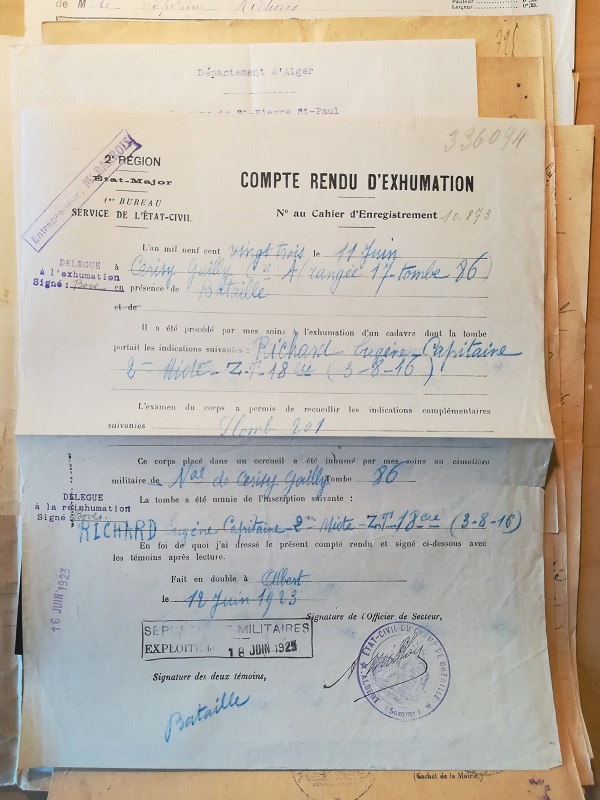 de M le capitaine Richard
795
Département d'Alger
St-Pierre St-Paul
336094
Entrepreneur
2e RÉGION
État-Major
1er BUREAU
SERVICE DE L'ÉTAT-CIVIL
COMPTE RENDU D'EXHUMATION
N° au Cahier d'Enregistrement 10.873
L'an mil neuf cent vingt trois le 11 Juin
DELEGUE
à l'exhumation
Signé :
à Cerisy Gailly A (rangée 17 - tombe 86)
en présence de Bataille
et de
Il a été procédé par mes soins à l'exhumation d'un cadavre dont la tombe
portait les indications suivantes : Richard Eugène - Capitaine
2me Mixte - Z.T. - 18 (3-8-16)
L'examen du corps a permis de recueillir les indications complémentaires
suivantes Plomb 201
Ce corps placé dans un cercueil a été inhumé par mes soins au cimetière
militaire de Nal de Cerisy Gailly Tombe 86
DELEGUE
à la réinhumation
Signé :
La tombe a été munie de l'inscription suivante :
RICHARD Eugène Capitaine - 2me Mixte - Z.T. 18 (3-8-16)
En foi de quoi j'ai dressé le présent compte rendu et signé ci-dessous avec
les témoins après lecture.
Fait en double à Albert
le 12 Juin 1923
16 JUIN 1923
Signature de l'Officier de Secteur,
MILITAIRES
EXPLOITÉ le 18 JUIN 1923
ÉTAT-CIVIL DU CHAMP DE BATAILLE
(Somme)
Signature des deux témoins,
Bataille
(Cachet de la Mairie.)